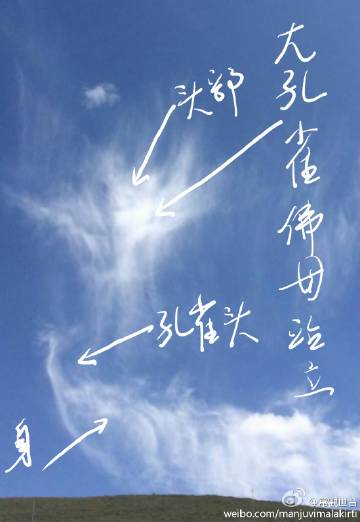 大孔雀佛母站立
头部
孔雀头
身
weibo.com/manjuvimalakirti